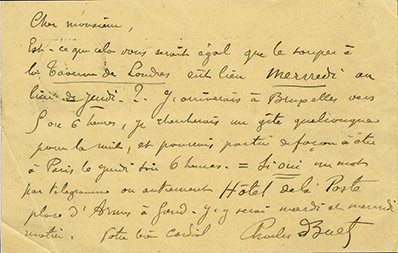 Cher monsieur,
Est-ce que cela vous serait égal que le souper à
la Taverne de Londres eût lieu mercredi au
lieu de jeudi - ? J'arriverais à Bruxelles vers
5 ou 6 heures, je chercherais un gîte quelconque
pour la nuit, et pourrais partir de façon à être
à Paris le jeudi soir 6 heures. = Si oui un mot
par télégramme ou autrement Hôtel de la Poste
place d'Armes à Gand. J'y serai mardi et mercredi
matin. Votre bien cordial Charles Buet